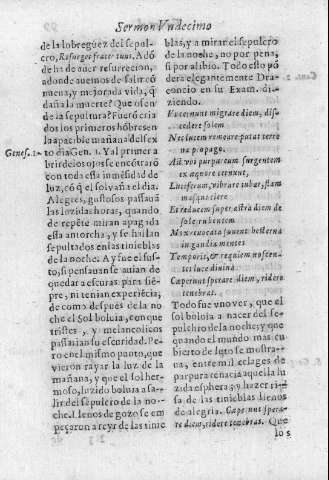 Sermon Vndecimo
de la lobreguez del sepul-
cro, Resurget frater tuus. Adõ
de ha de auer resurrecion,
adonde auemos de salir cõ
nueua, y mejorada vida, q
daña la muerte? Que ofen
de la sepultura? Fuerõ cria
dos los primeros hõbres en
la apacible mañana del sex
Genes. 1.
to dia Gen. 1. Y al primer a
brir de los ojos se encõtrarõ
con toda esta inmẽsidad de
luz, cõ q el sol vaña el dia.
Alegres, gustosos passauã
las lozidas horas, quando
de repẽte miran apagada
esta antorcha, y se hallan
sepultados en las tinieblas
de la noche. Ay fue el sus-
to, si pensauan se auian de
quedar a escuras para siẽ-
pre, ni tenian experiẽcia;
de como despues de la no
che el Sol boluia, con que
tristes, y melancolicos
passarian su escuridad. Pe-
ro en el mismo punto, que
vieron rayar la luz de la
mañana, y que el sol her-
moso, luzido boluia a sa-
lir del sepulcro de la no-
che. Llenos de gozo se em
peçaron a reyr de las tinie
blas, y a mirar el sepulcro
de la noche, no por pena,
si por alibio. Todo esto põ
dera elegantemente Dra-
concio en su Exam. di-
ziendo.
Ut cernunt migrare diem, dis-
cedere solem
Nec lucem remeare putat terre
na propago.
Ast vbi purpuream surgentem
ex æquore cernunt,
Luciferum, vibrare iubar, flam
masque ciere
Et reducem super astra diem de
sole rubentem
Mox reuocata fouent hesterna
in gaudia mentes
Temporis, & requiem noscen-
tes luce diuina
Cæperunt sperare diem, ridere
tenebras.
Todo fue vno ver, que el
sol boluia a nacer del se-
pulchro de la noche; y que
quando el mundo mas cu
bierto de luto se mostra-
ua, entre mil eclages de
purpura renacia aquella lu
zida esphera, y hazer risa
de las tinieblas llenos
de alegria. Cæperunt spera-
re diem, ridere tenebras. Que
los